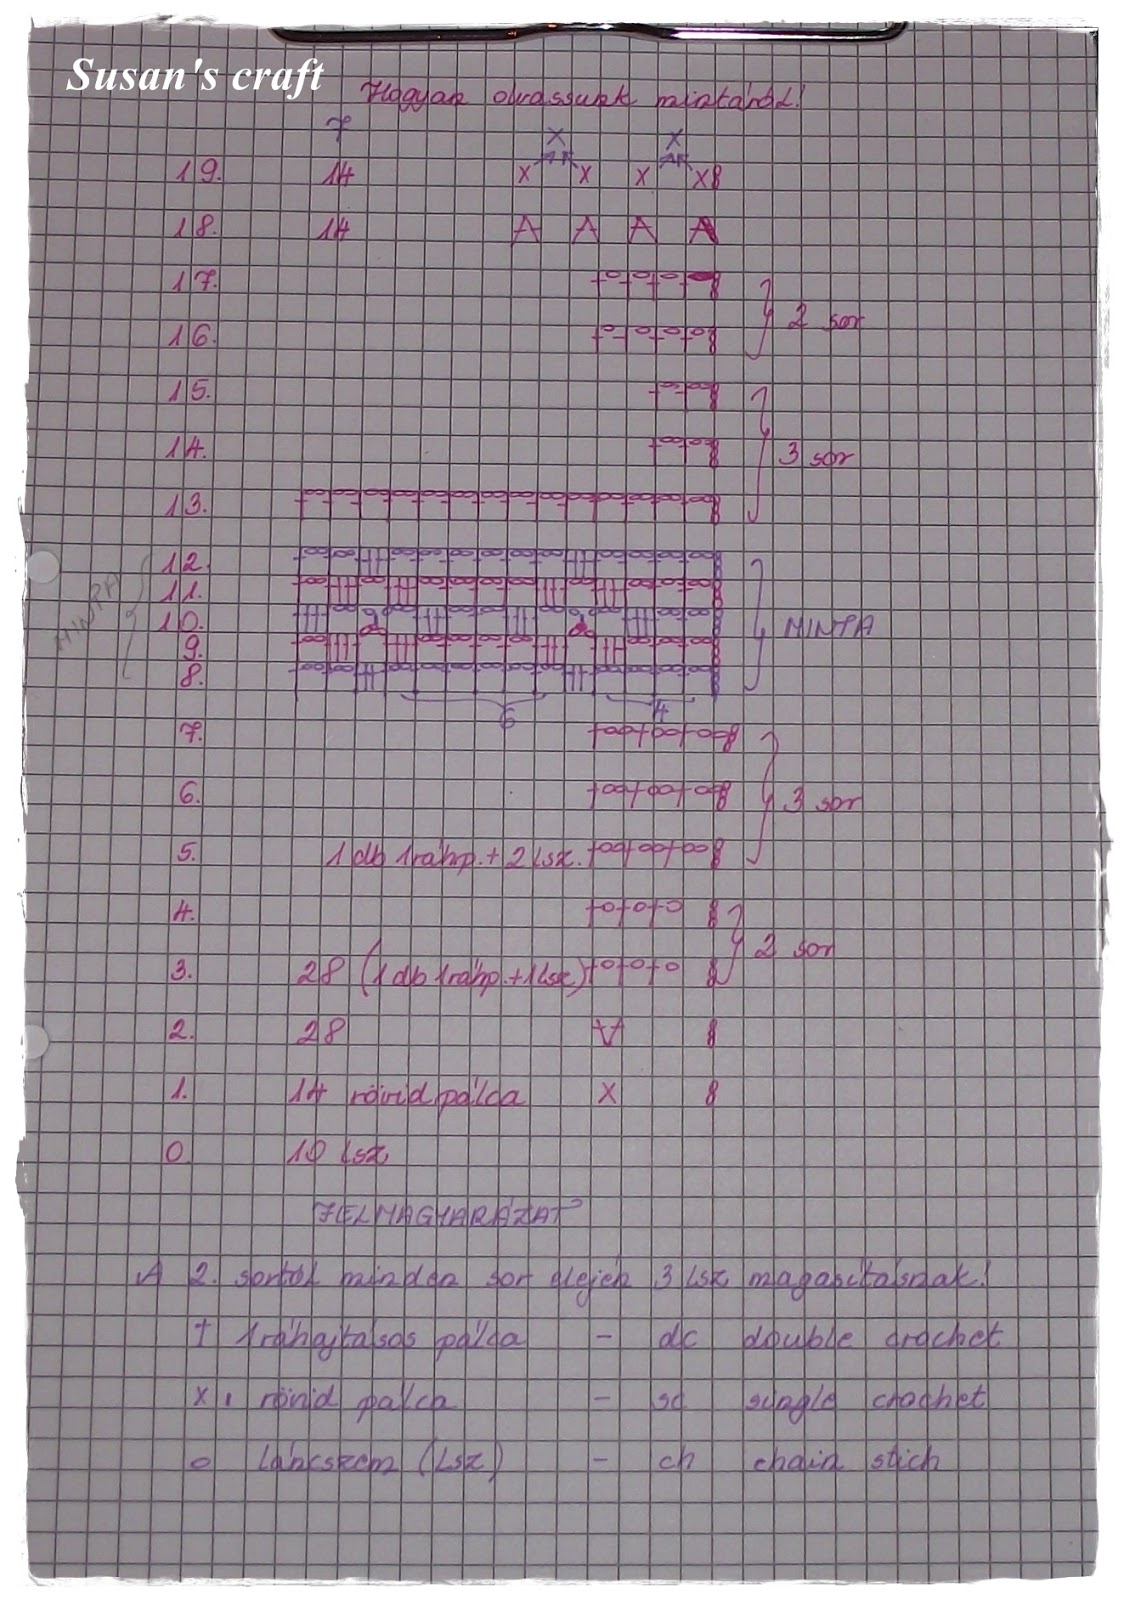 Susan's craft
Hogyan olvassunk mintáról!
7 X X
19. 14 X X X X8
18. 14 A A A A
17.
2 sor
16.
15.
14. 3 sor
13.
12.
11.
MINTA 10. MINTA
9.
8.
6 4
7.
6. 3 sor
5. 1 db 1ráhp. + 2 lsz.
4.
2 sor
3. 28 (1 db 1ráhp. + 1 lsz)
2. 28
1. 14 rövid pálca X
0 10 lsz
JELMAGYARÁZAT
A 2. sortól minden sor elején 3 lsz magasításnak!
† 1ráhajtásos pálca - dc double crochet
x rövid pálca - sc single crochet
o láncszem (lsz) - ch chain stich